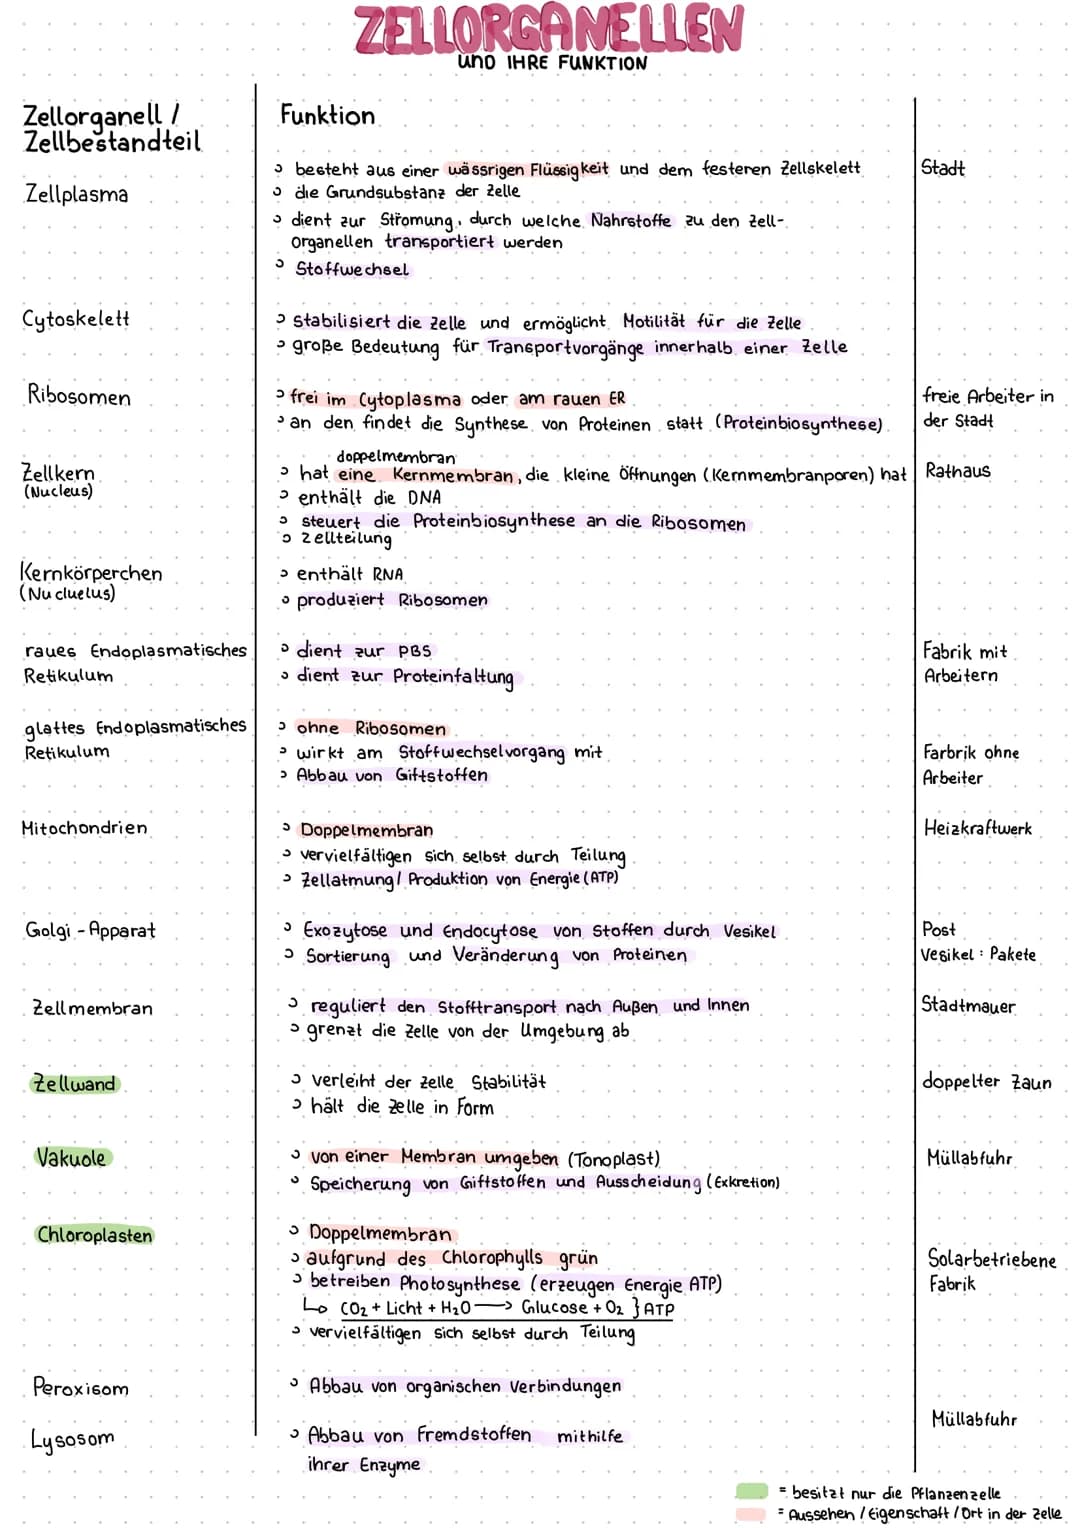 ZELLORGANELLEN
und IHRE FUNKTION
Zellorganell /
Zellbestandteil
Funktion
Zellplasma
besteht aus einer wässrigen Flüssigkeit und dem festeren Zellskelett
Stadt
die Grundsubstanz der Zelle
dient zur Strömung, durch welche Nährstoffe zu den Zell-
organellen transportiert werden
Stoffwechsel
Cytoskelett
stabilisiert die Zelle und ermöglicht Motilität für die Zelle
große Bedeutung für Transportvorgänge innerhalb einer Zelle
Ribosomen
frei im Cytoplasma oder am rauen ER
freie Arbeiter in
an den findet die Synthese von Proteinen statt (Proteinbiosynthese)
der Stadt
doppelmembran
Zellkern
(Nucleus)
hat eine Kernmembran, die kleine Öffnungen (Kernmembranporen) hat
Rathaus
enthält die DNA
steuert die Proteinbiosynthese an die Ribosomen
Zellteilung
Kernkörperchen
(Nucluelus)
enthält RNA
produziert Ribosomen
raues Endoplasmatisches
Retikulum
dient zur PBS
dient zur Proteinfaltung
Fabrik mit
Arbeitern
glattes Endoplasmatisches
Retikulum
ohne Ribosomen
wirkt am Stoffwechselvorgang mit
Abbau von Giftstoffen
Farbrik ohne
Arbeiter
Mitochondrien
Doppelmembran
vervielfältigen sich selbst durch Teilung
Zellatmung/ Produktion von Energie (ATP)
Heizkraftwerk
Golgi - Apparat
Exozytose und Endocytose von Stoffen durch Vesikel
Sortierung und Veränderung von Proteinen
Post
Vesikel : Pakete
Zellmembran
reguliert den Stofftransport nach Außen und Innen
grenzt die Zelle von der Umgebung ab
Stadtmauer
Zellwand
verleiht der Zelle Stabilität
hält die Zelle in Form
doppelter Zaun
Vakuole
von einer Membran umgeben (Tonoplast)
Speicherung von Giftstoffen und Ausscheidung (Exkretion)
Müllabfuhr
Chloroplasten
Doppelmembran
aufgrund des Chlorophylls grün
betreiben Photosynthese (erzeugen Energie ATP)
↳ CO2 + Licht + H2O → Glucose + O2 } ATP
vervielfältigen sich selbst durch Teilung
Solarbetriebene
Fabrik
Peroxisom
Abbau von organischen Verbindungen
Lysosom
Abbau von Fremdstoffen mithilfe
ihrer Enzyme
Müllabfuhr
= besitzt nur die Pflanzenzelle
= Aussehen / Eigenschaft / Ort in der Zelle